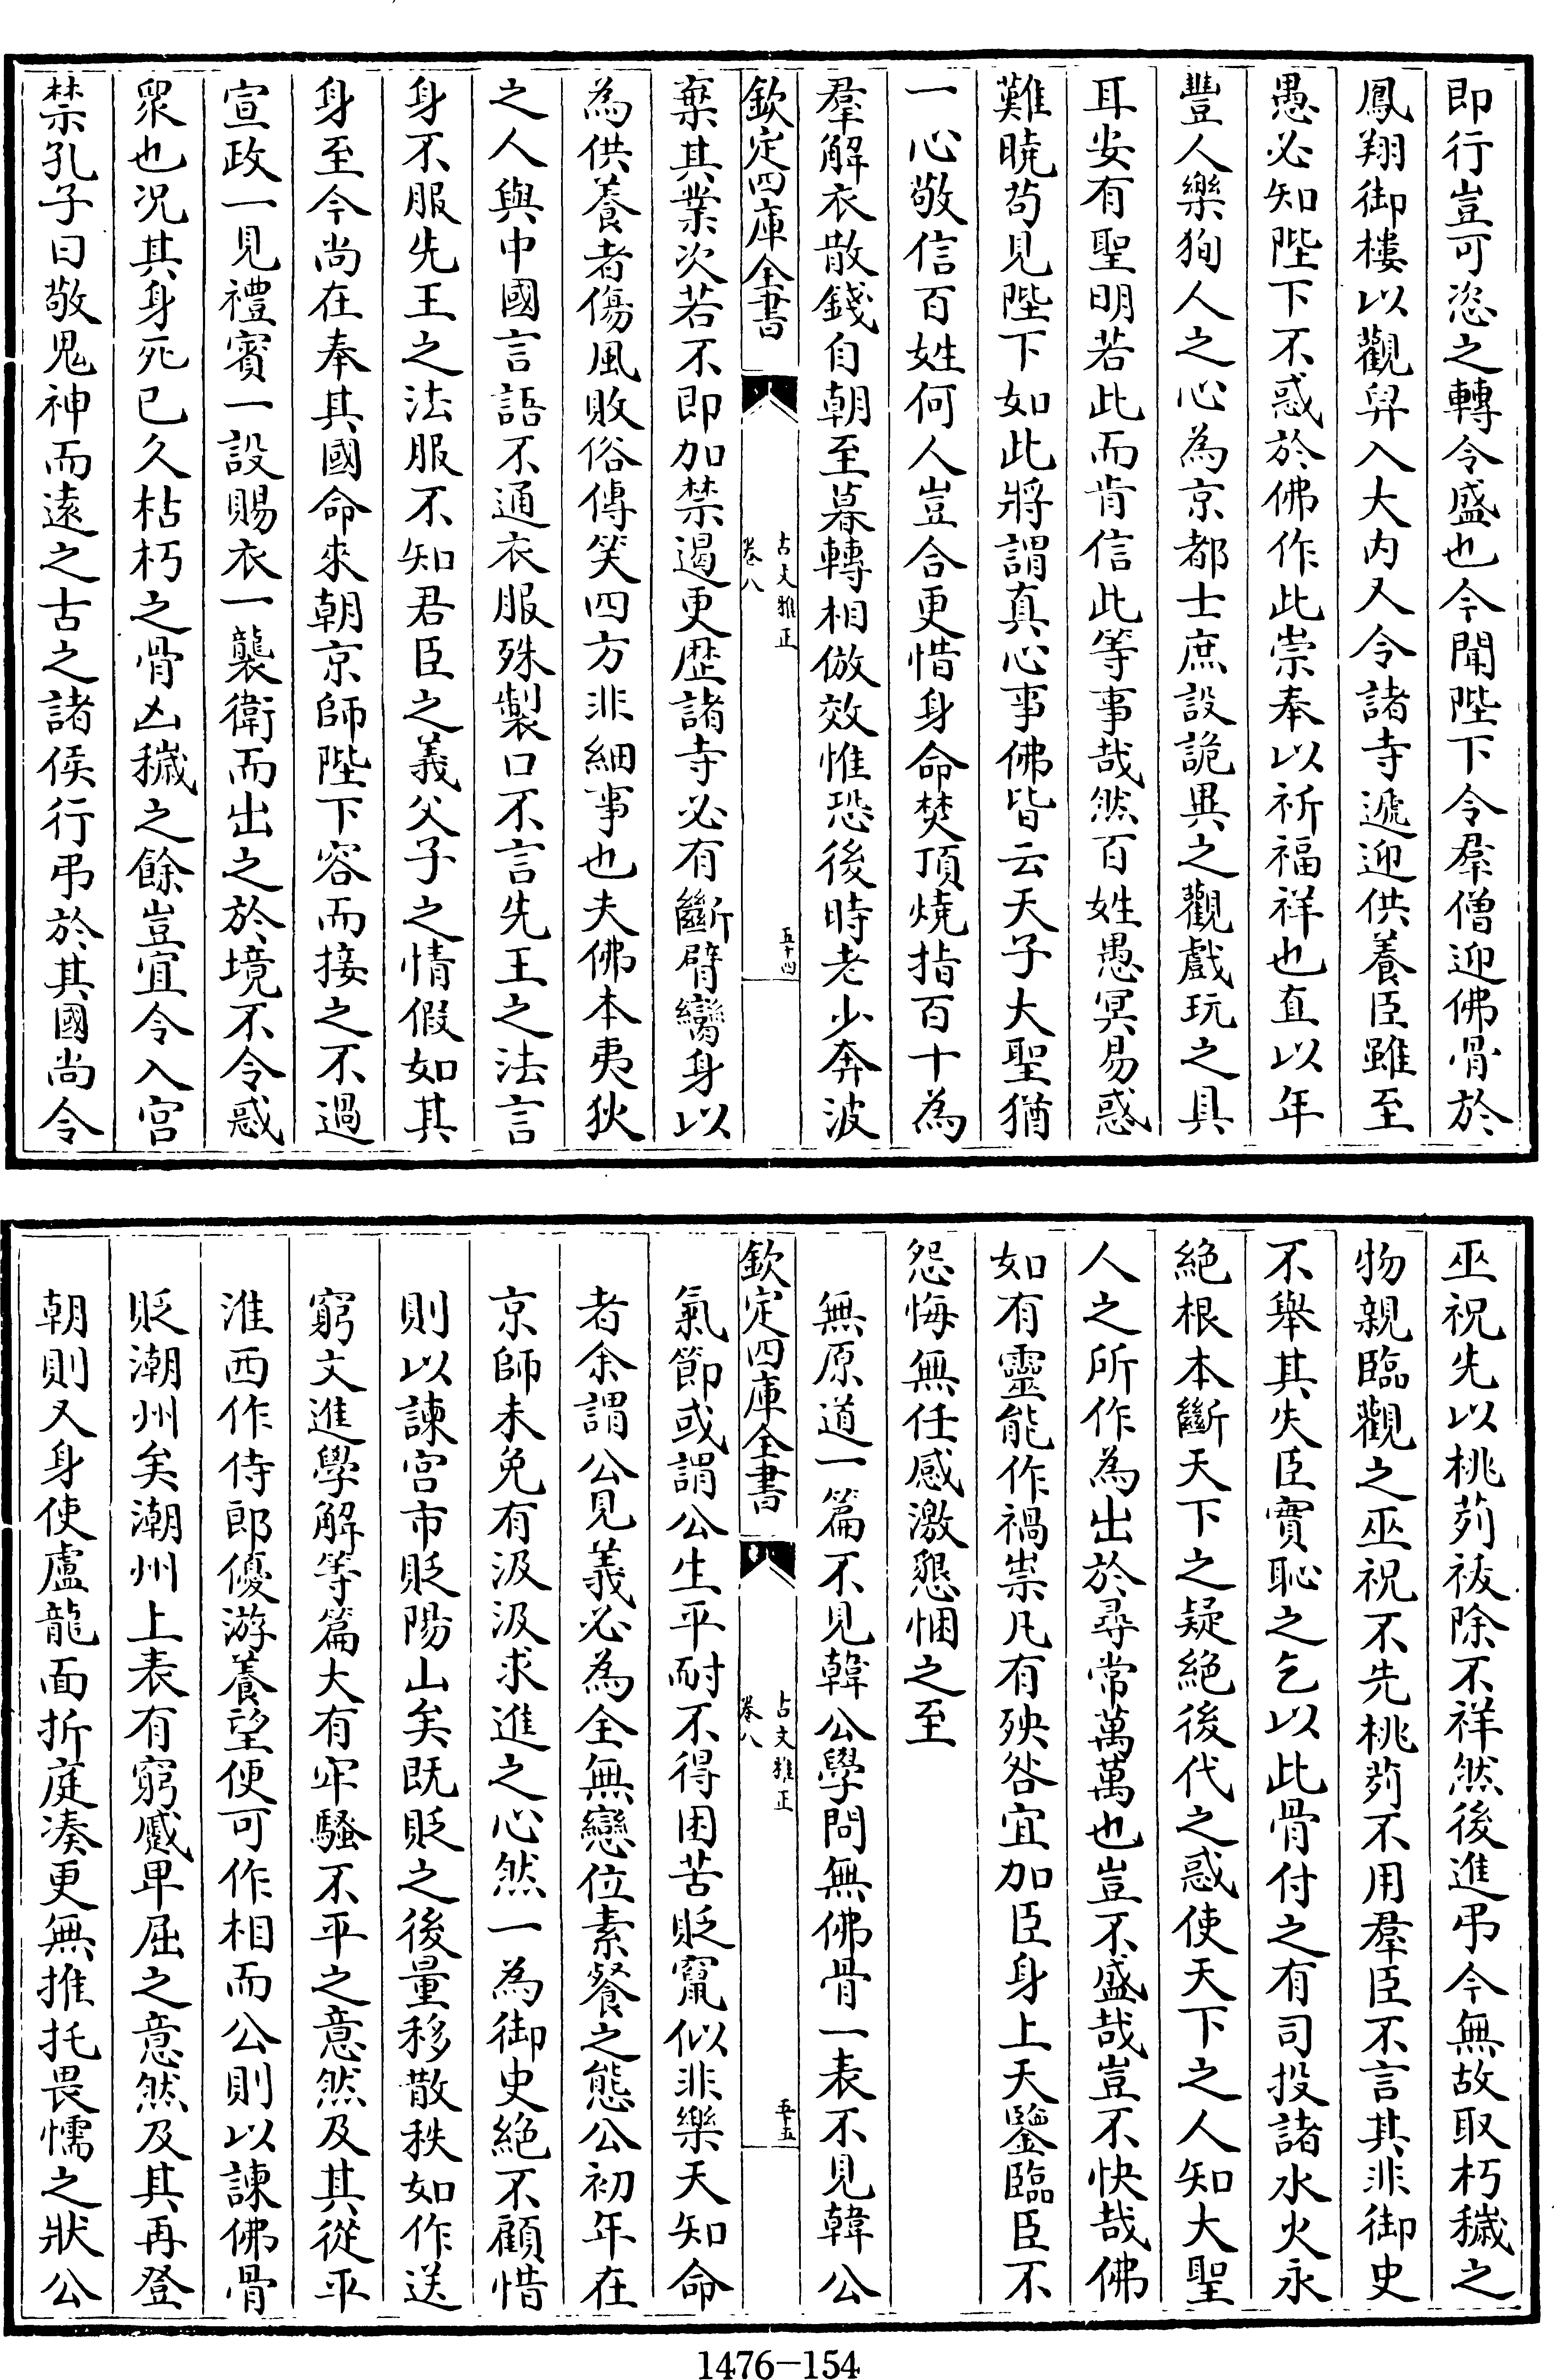 即行豈可恣之轉令盛也今聞陛下令羣僧迎佛骨於
鳳翔御樓以觀舁入大内又令諸寺遞迎供養臣雖至
愚必知陛下不惑於佛作此崇奉以祈福祥也直以年
豐人樂狥人之心為京都士庶設詭異之觀戲玩之具
耳安有聖明若此而肯信此等事哉然百姓愚冥易惑
難曉茍見陛下如此將謂真心事佛皆云天子大聖猶
一心敬信百姓何人豈合更惜身命焚頂燒指百十為
羣解衣散錢自朝至暮轉相倣效惟恐後時老少奔波
欽定四庫全書
古文雅正
卷八
五十四
棄其業次若不即加禁遏更歴諸寺必有斷臂臠身以
為供養者傷風敗俗傳笑四方非細事也夫佛本夷狄
之人與中國言語不通衣服殊製口不言先王之法言
身不服先王之法服不知君臣之義父子之情假如其
身至今尚在奉其國命來朝京師陛下容而接之不過
宣政一見禮賓一設賜衣一襲衛而出之於境不令惑
衆也况其身死已久枯朽之骨凶穢之餘豈宜令入宫
禁孔子曰敬鬼神而遠之古之諸侯行弔於其國尚令
巫祝先以桃茢祓除不祥然後進弔今無故取朽穢之
物親臨觀之巫祝不先桃茢不用羣臣不言其非御史
不舉其失臣實恥之乞以此骨付之有司投諸水火永
絶根本斷天下之疑絶後代之惑使天下之人知大聖
人之所作為出於尋常萬萬也豈不盛哉豈不快哉佛
如有靈能作禍祟凡有殃咎宜加臣身上天鑒臨臣不
怨悔無任感激懇悃之至
無原道一篇不見韓公學問無佛骨一表不見韓公
欽定四庫全書
古文雅正
卷八
五十五
氣節或謂公生平耐不得困苦貶竄似非樂天知命
者余謂公見義必為全無戀位素餐之態公初年在
京師未免有汲汲求進之心然一為御史絶不顧惜
則以諫宫市貶陽山矣既貶之後量移散秩如作送
窮文進學解等篇大有牢騷不平之意然及其從平
淮西作侍郎優游養望便可作相而公則以諫佛骨
貶潮州矣潮州上表有窮蹙卑屈之意然及其再登
朝則又身使盧龍面折庭湊更無推托畏懦之狀公
1476-154